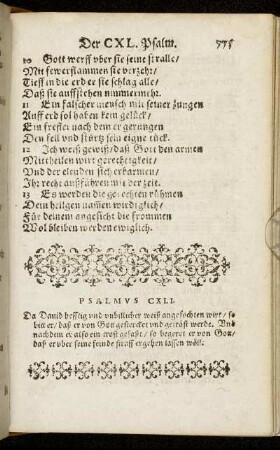 Der CXL. Psalm. 775
10 Gott werff vber sie seine stralle/
Mit fewerflammen sie verzehr/
Tieff in die erd er sie schlag alle/
Daß sie auffstehen nimmermehr.
11 Ein falscher mensch mit seiner zungen
Auff erd sol haben kein gelück/
Ein frefler nach dem er gerungen
Den fell vnd stürtz sein eigne tück.
12 Ich weiß gewiß/ daß Gott den armen
Mittheilen wirt gerechtigkeit/
Vnd der elenden sich erbarmen/
Ihr recht außführen mit der zeit.
13 Es werden die gerechten rühmen
Dein heilgen namen wirdiglich/
Für deinem angesicht die frommen
Wol bleiben werden ewiglich.
PSALMVS CXLI.
Da Dauid hefftig vnd vnbillicher weiß angefochten wirt/ so
bitt er/ daß er von Gott gestercket vnd getröst werde. Vnd
nachdem er also ein trost gefaßt/ so begeret er von Gott/
daß er vber seine feinde straff ergehen lassen wöll.